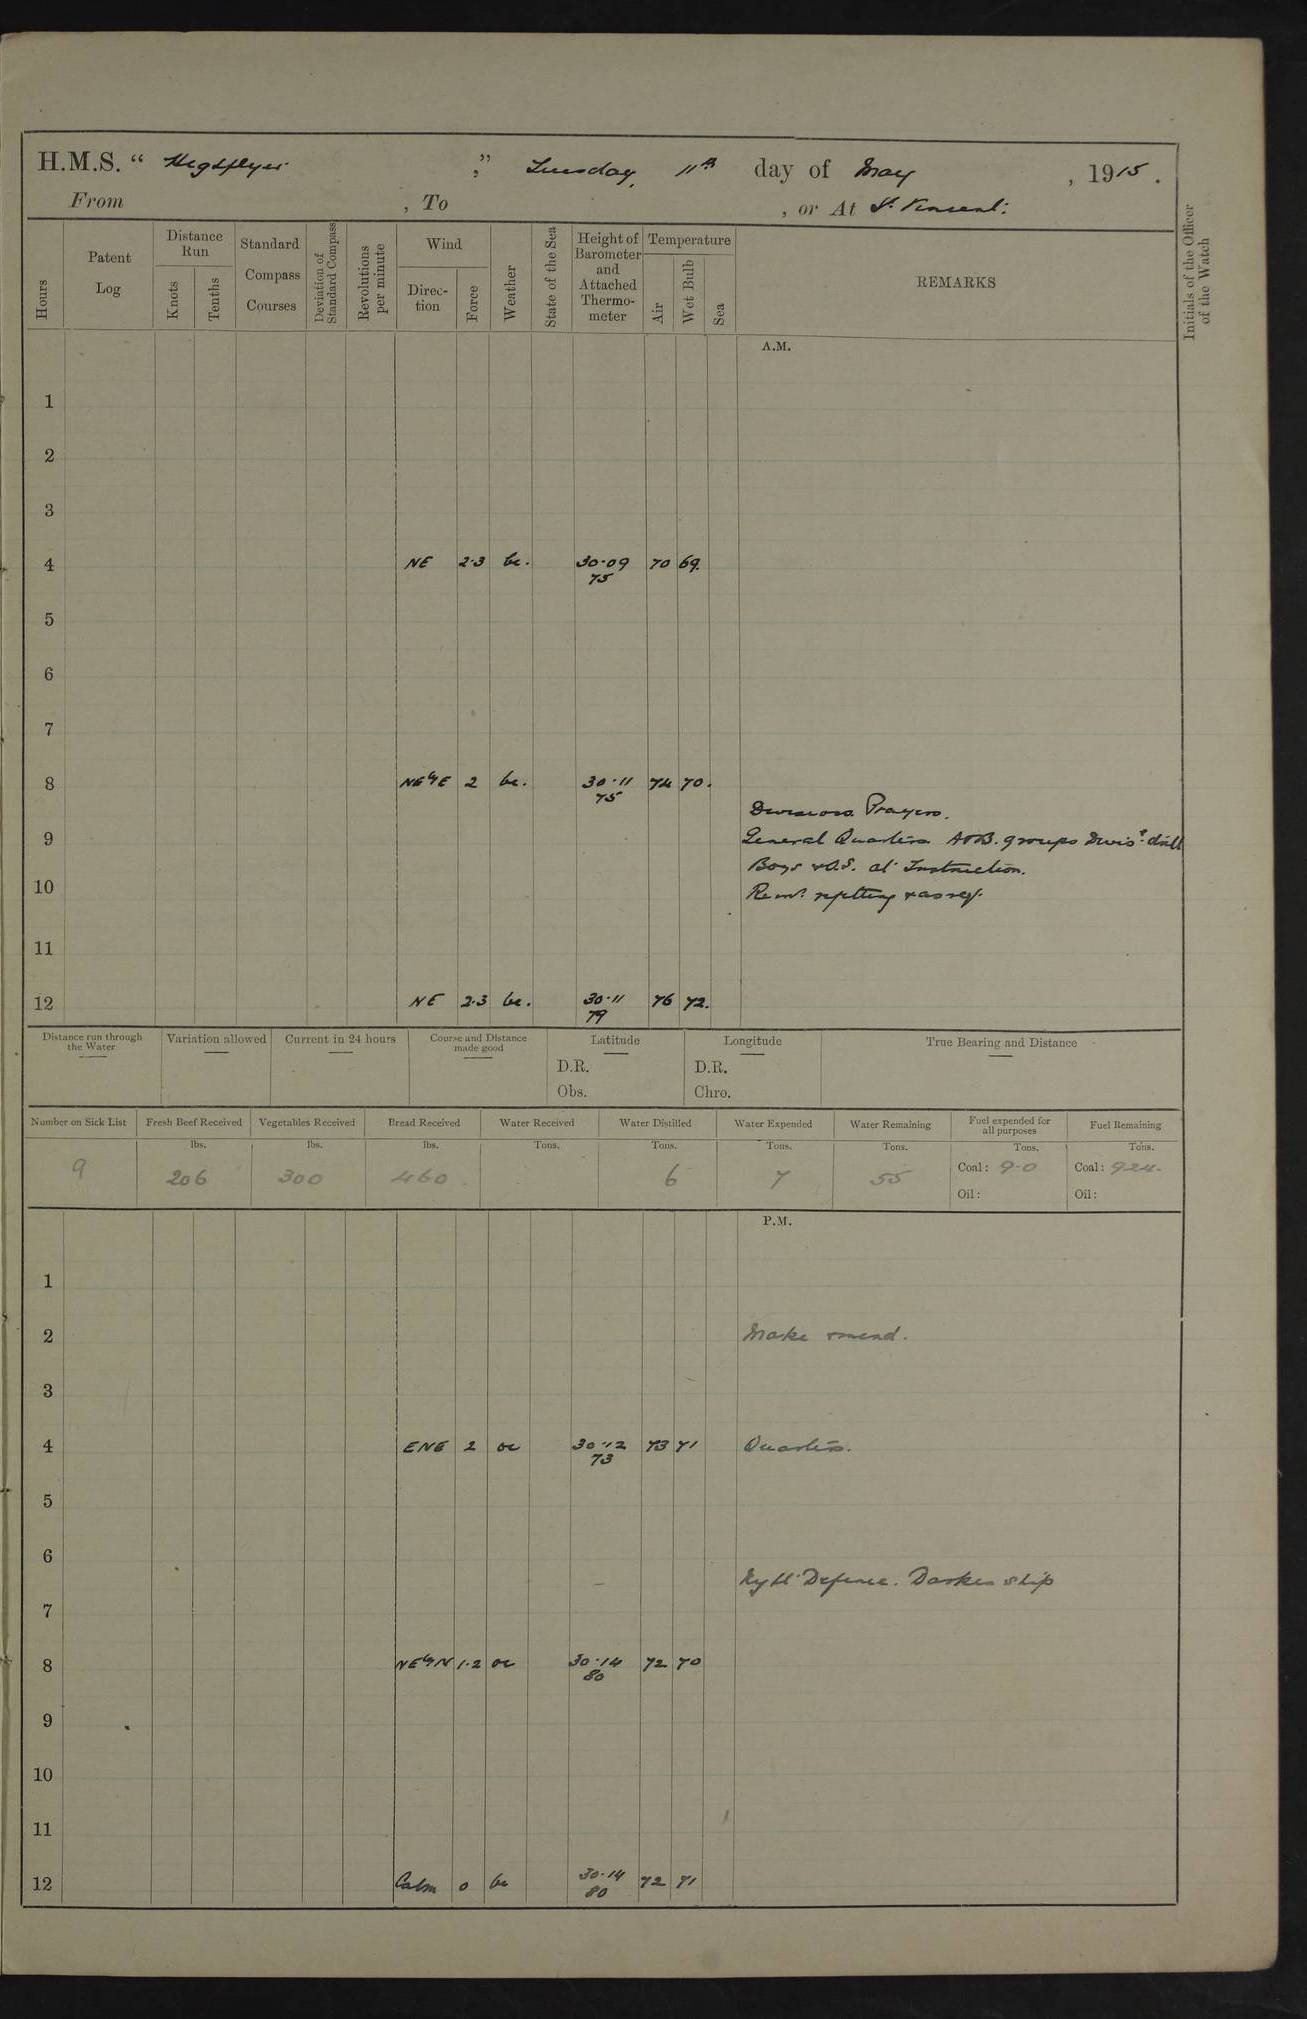 H.M.S. “ Highflyer ,” Tuesday, 11th day of May , 1915 .
From , To , or At St. Vincent.
Hours
Patent Log
Distance Run
Knots
Tenths
Standard Compass Courses
Deviation of Standard Compass
Revolutions per minute
Wind
Direc-tion
Force
Weather
State of the Sea
Height of Barometer and Attached Thermo-meter
Temperature
Air
Wet Bulb
Sea
REMARKS
Initials of the Officer of the Watch
A.M.
1
2
3
4 NE 2·3 bc. 30·09 70 69.
75
5
6
7
8 NEbyE 2 bc. 30·11 74 70.
75
Divisions. Prayers.
9 General Quarters. A & B. groups Divisl. drill
Boys & O.S. at Instruction.
10 Remr. refitting & as req.
11
12 NE 2·3 bc. 30·11 76 72.
79
Distance run through the Water
Variation allowed
Current in 24 hours
Course and Distance made good
Latitude
D.R.
Obs.
Longitude
D.R.
Chro.
True Bearing and Distance
Number on Sick List
Fresh Beef Received
Vegetables Received
Bread Received
Water Received
Water Distilled
Water Expended
Water Remaining
Fuel expended for all purposes
Fuel Remaining
lbs. lbs. lbs. Tons. Tons. Tons. Tons. Tons. Tons.
9 206 300 460 6 7 55 Coal: 9·0 Coal: 924.
Oil: Oil:
P.M.
1
2 Make & mend.
3
4 ENE 2 oc 30·12 73 71 Quarters.
73
5
6
Night Defence. Darken ship
7
8 NEbyN 1·2 oc 30·14 72 70
80
9
10
11
12 Calm 0 bc 30·14 72 71
80